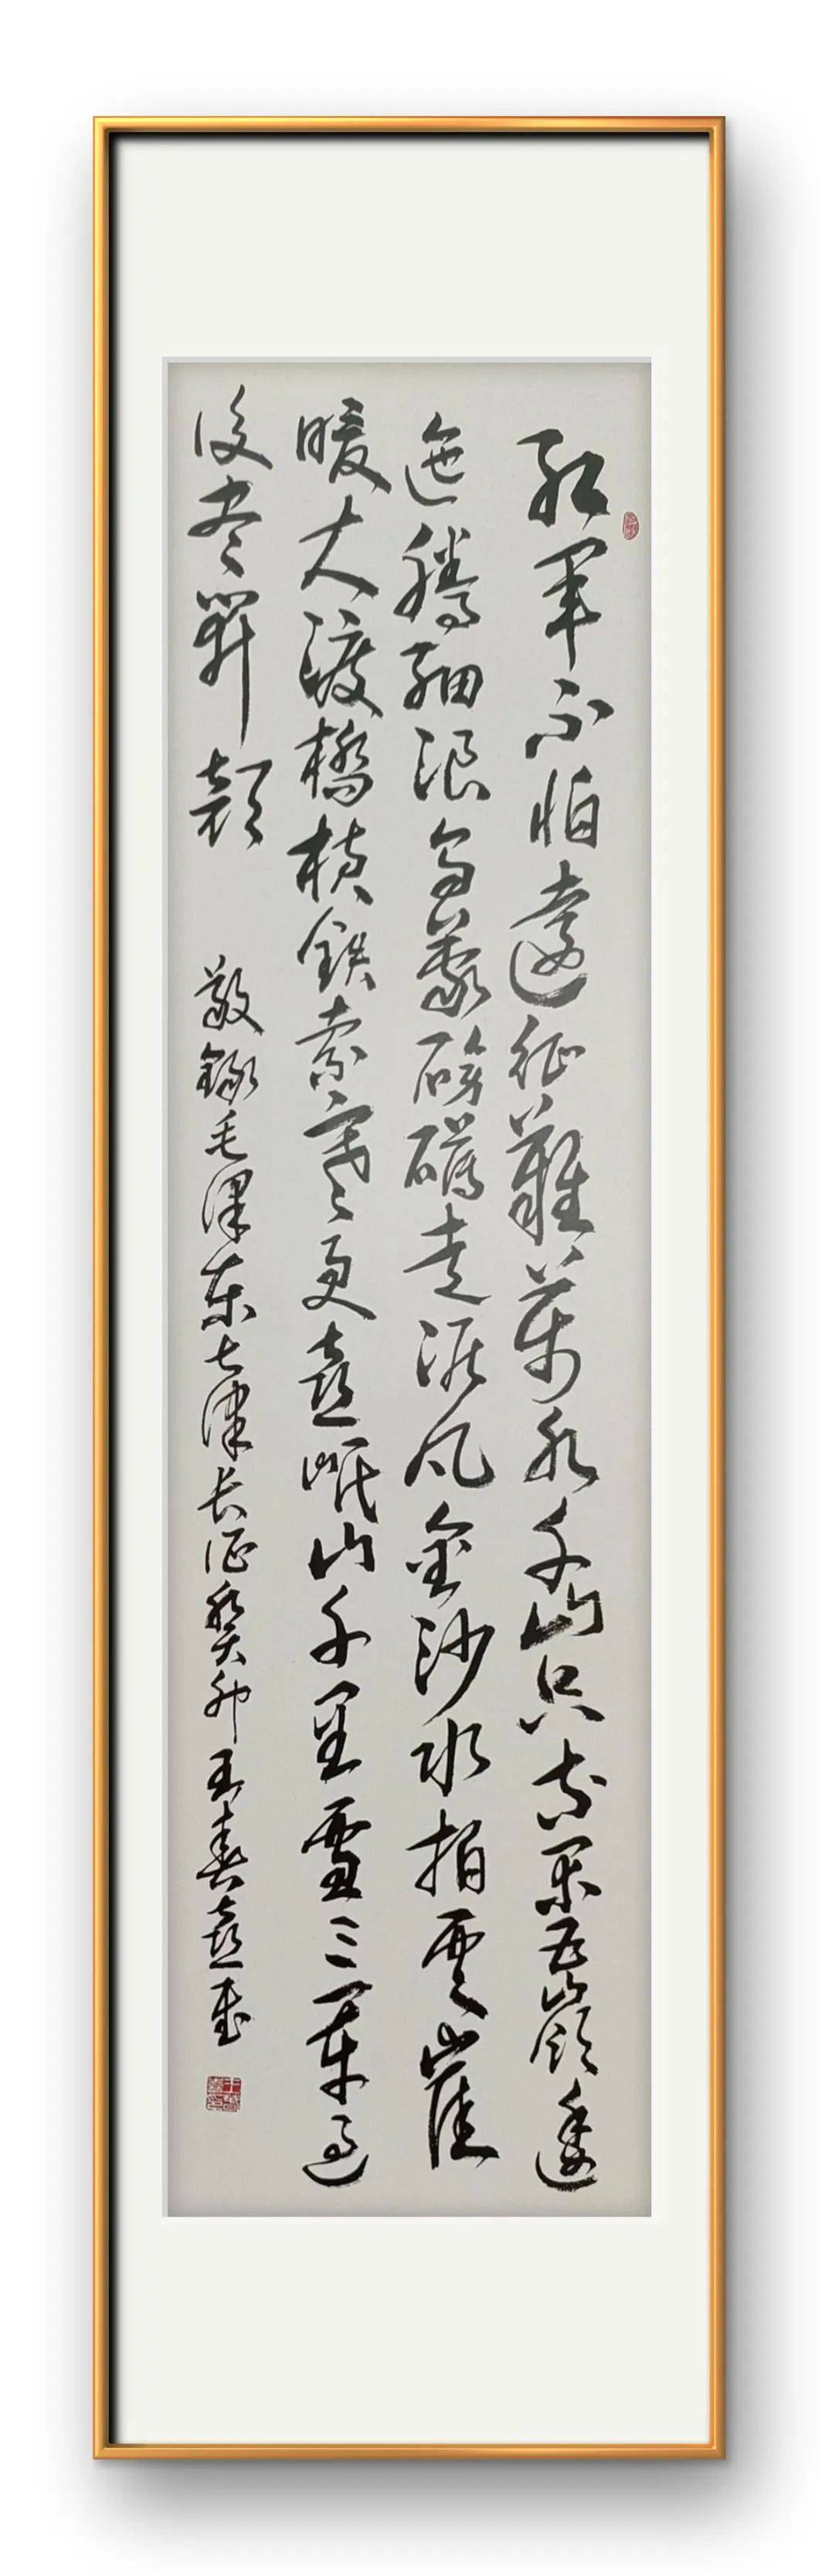 红军不怕远征难万水千山只等闲五岭逶
迤腾细浪乌蒙磅礴走泥丸金沙水拍云崖
暖大渡桥横铁索寒更喜岷山千里雪三军过
后尽开颜
敬录毛泽东七律长征癸卯王春喜书